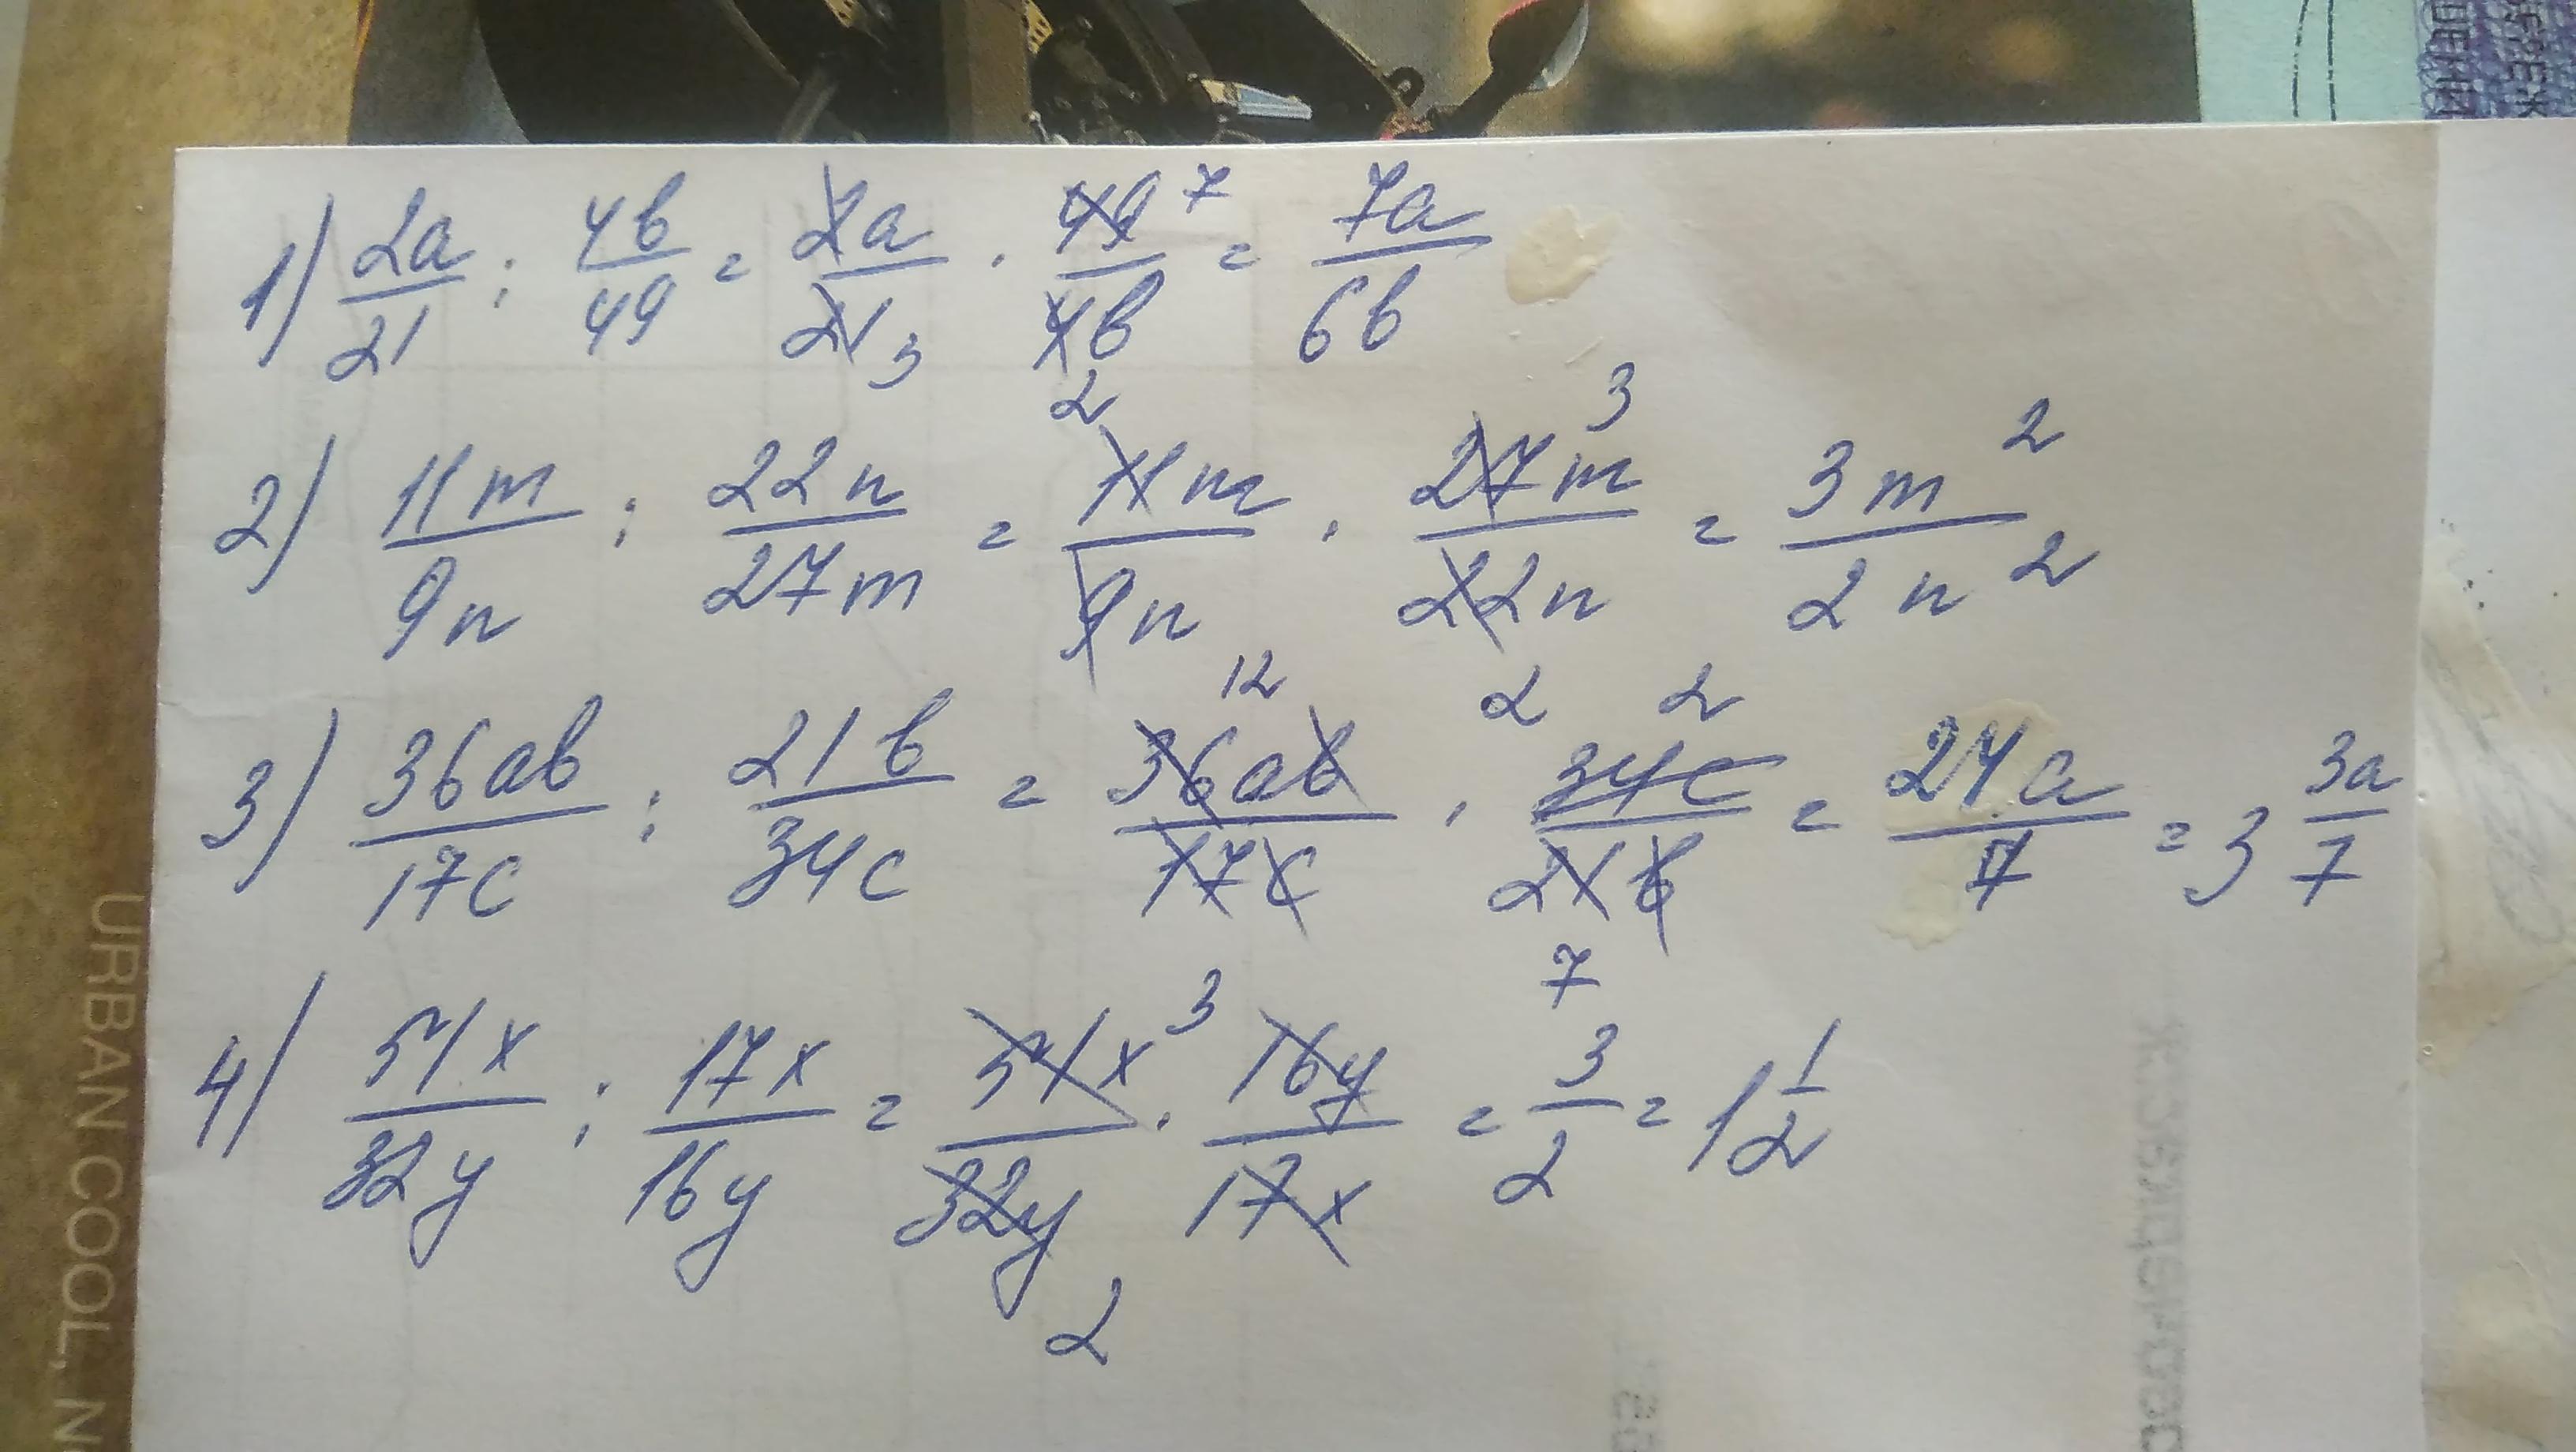 1) 2a/21 : 4b/49 = 2a/21 3 · 49 7/4b 2 = 7a/6b
2) 11m/9n : 22n/27m = 11m/9n · 27m 3/22n 2 = 3m²/2n²
3) 36ab/17c : 21b/34c = 36ab 12/17c · 34c 2/21b 7 = 24a/7 = 3 3a/7
4) 51x/32y : 17x/16y = 51x 3/32y 2 · 16y/17x = 3/2 = 1 1/2
URBAN COOL, N